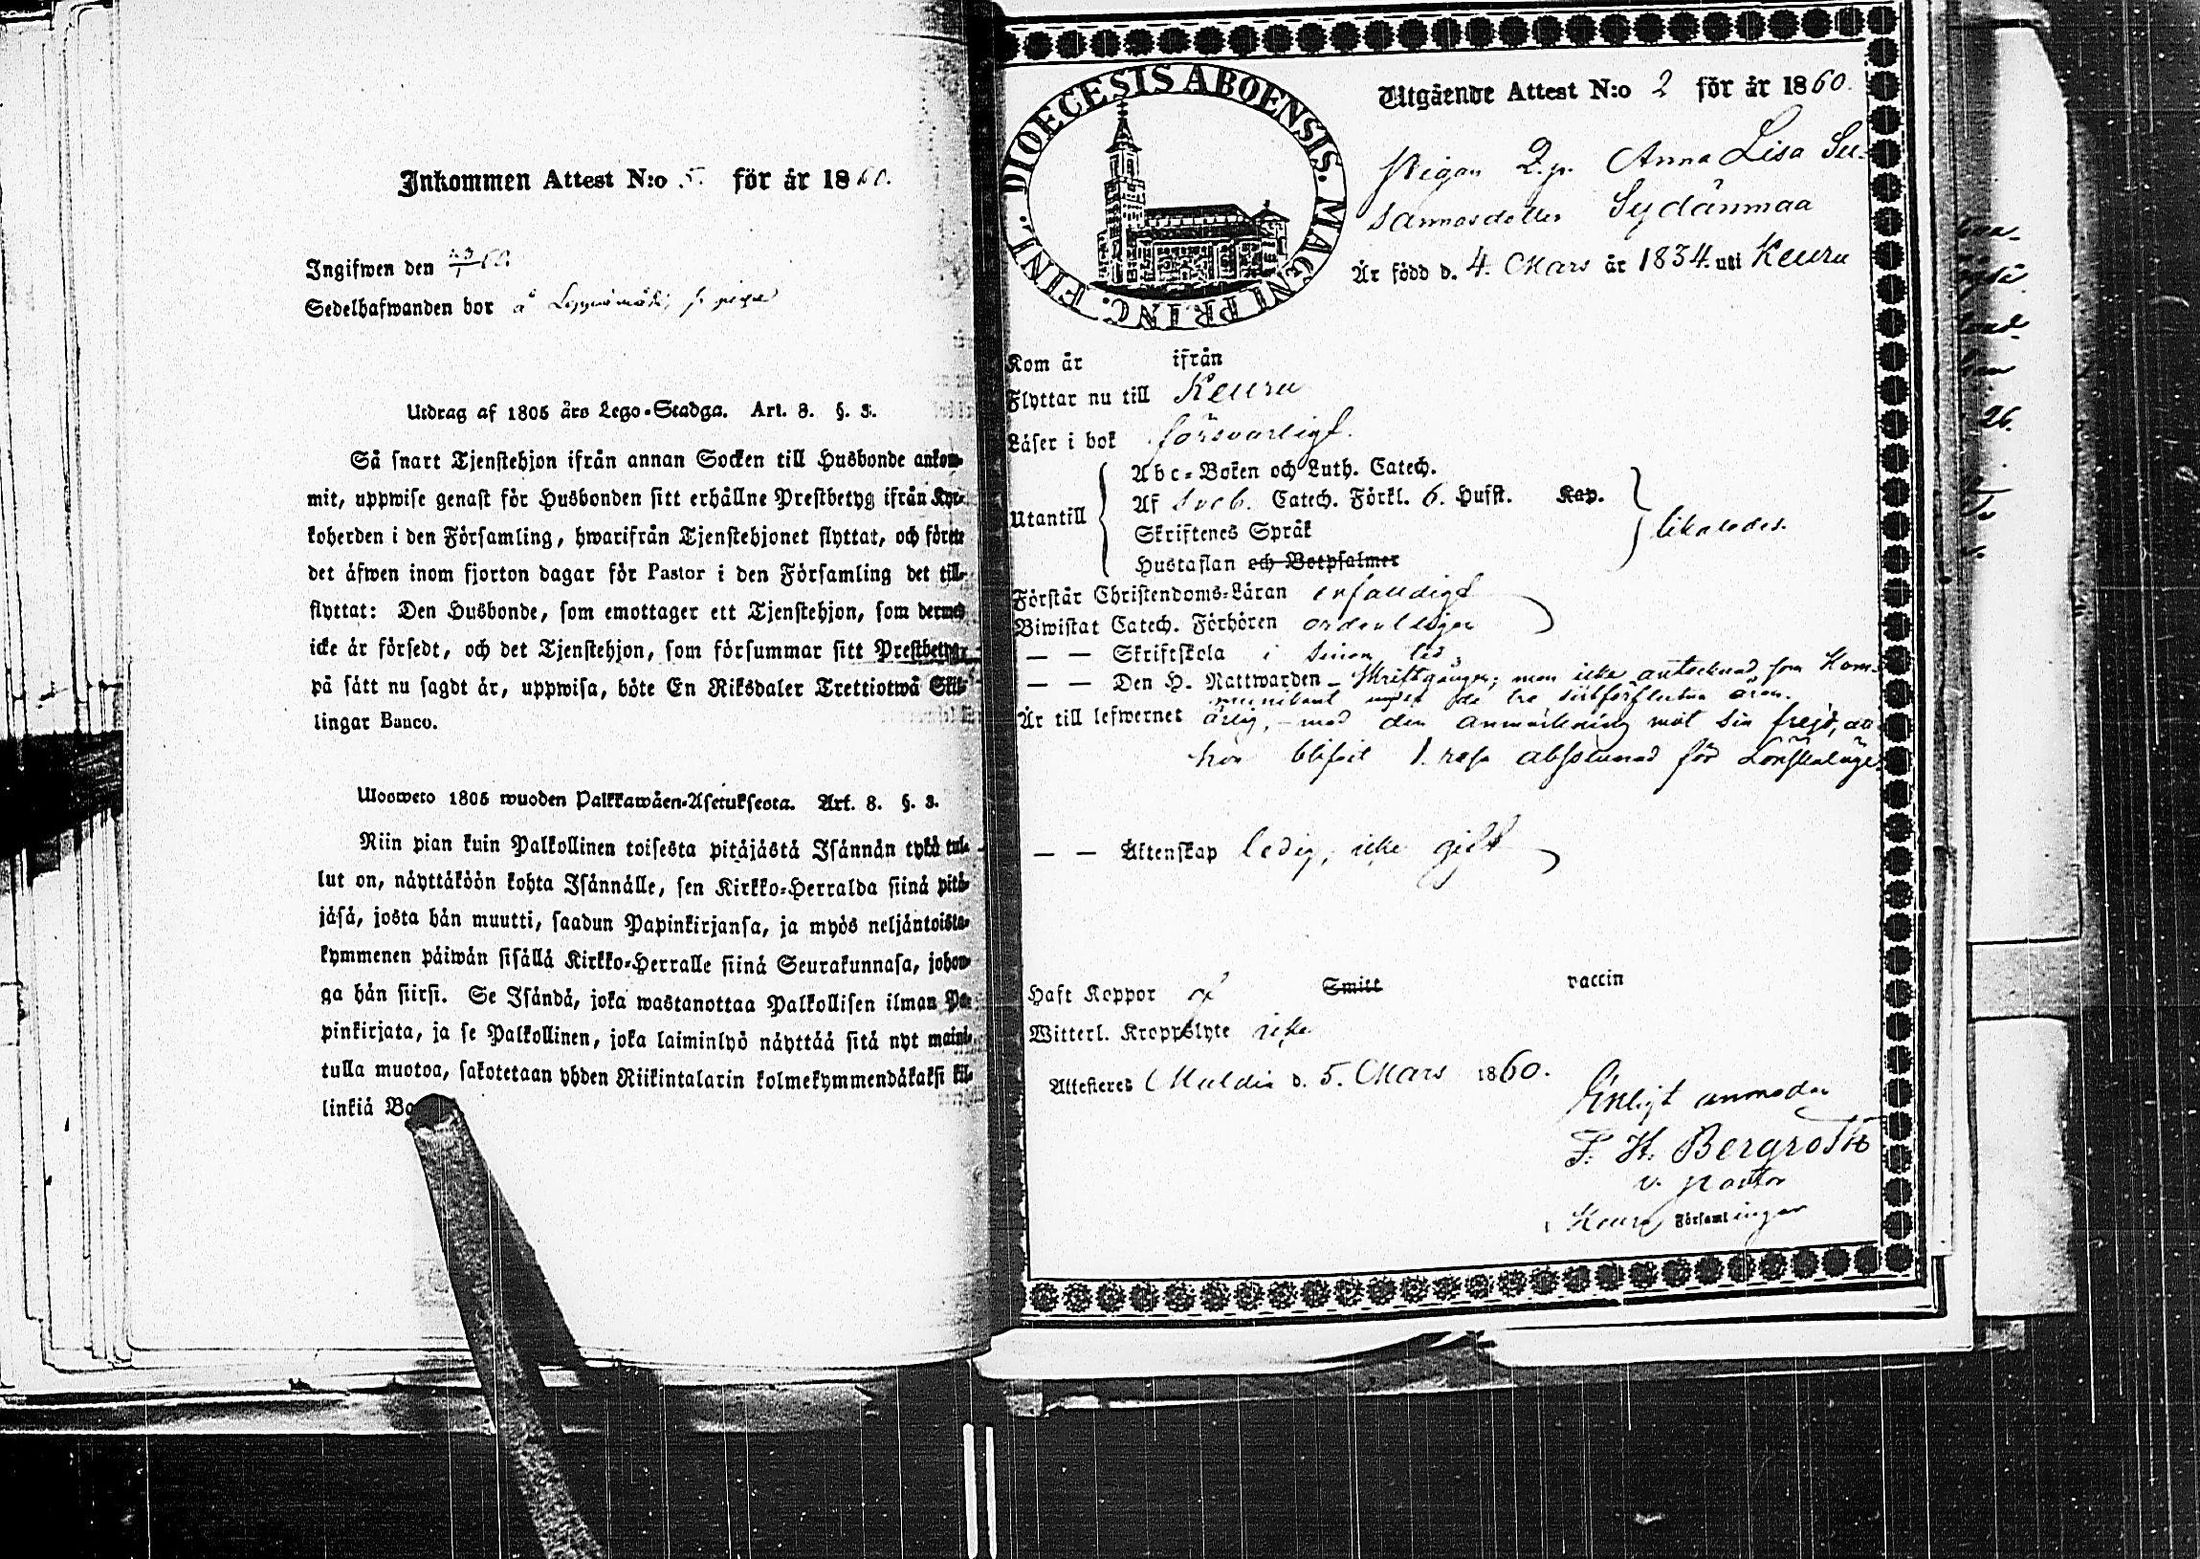 Inkommen Attest N:o 5. för år 1860.
Ingifwen den
Sedelhafwanden bor å
Utdrag af 1805 års Lego-Stadga. Art. 8. §. 3.
Så snart Tjenstehjon ifrån annan Socken till Husbonde ankom-
mit, uppwise genast för Husbonden sitt erhållne Prestbetyg ifrån Kyr-
koherden i den Församling, hwarifrån Tjenstehjonet flyttat, och förete
det äfwen inom fjorton dagar för Pastor i den Församling det till-
flyttat: Den Husbonde, som emottager ett Tjenstehjon, som dermed
icke är försedt, och det Tjenstehjon, som försummar sitt Prestbetyg,
på sätt nu sagdt är, uppwisa, böte En Riksdaler Trettiotwå Skil-
lingar Banco.
Ulosweto 1805 wuoden Palkkawäen-Asetuksesta. Art. 8. §. 3.
Niin pian kuin Palkollinen toisesta pitäjästä Isännän tykö tul-
lut on, näyttäköön kohta Isännälle, sen Kirkko-Herralda siinä pitä-
jäsä, josta hän muutti, saadun Papinkirjansa, ja myös neljäntoista-
kymmenen päiwän sisällä Kirkko-Herralle siinä Seurakunnasa, johon-
ga hän siirsi. Se Isändä, joka wastanottaa Palkollisen ilman Pa-
pinkirjata, ja se Palkollinen, joka laiminlyö näyttää sitä nyt maini-
tulla muotoa, sakotetaan yhden Riikintalarin kolmekymmendäkaksi kil-
linkiä
DIOECESIS ABOENSIS. MAGNI PRINC. FINL.
Utgående Attest N:o 2 för år 1860.
Pigan Anna Lisa Su-
sannasdotter Sydänmaa
Är född d. 4. Mars år 1834. uti Keuru
Kom år ifrån
Flyttar nu till Keuru
Läser i bok försvarligt.
Abc-Boken och Luth. Catech.
Af Sveb. Catech. Förkl. 6. Hufst. Kap.
Utantill
Skriftenes Språk
likaledes.
Hustaflan och Botpsalmer
Förstår Christendoms-Läran enfaldigt
Biwistat Catech. Förhören ordentligen
— — Skriftskola i sinom tid
— — Den H. Nattwarden – Skriftgången; men icke antecknad som Kom-
munikant under de tre sistförflutna åren.
Är till lefwernet ärlig, – med den anmärkning mot sin frejd, att
hon blifvit 1. resa absolverad för Lönskaläge.
— — Äktenskap ledig, icke gift
Haft Koppor Smitt vaccin
Witterl. Kroppslyte icke
Attesteres Multia d. 5. Mars 1860.
Enligt anmodan
F. H. Bergroth
v. pastor
i Keuru Församlingar